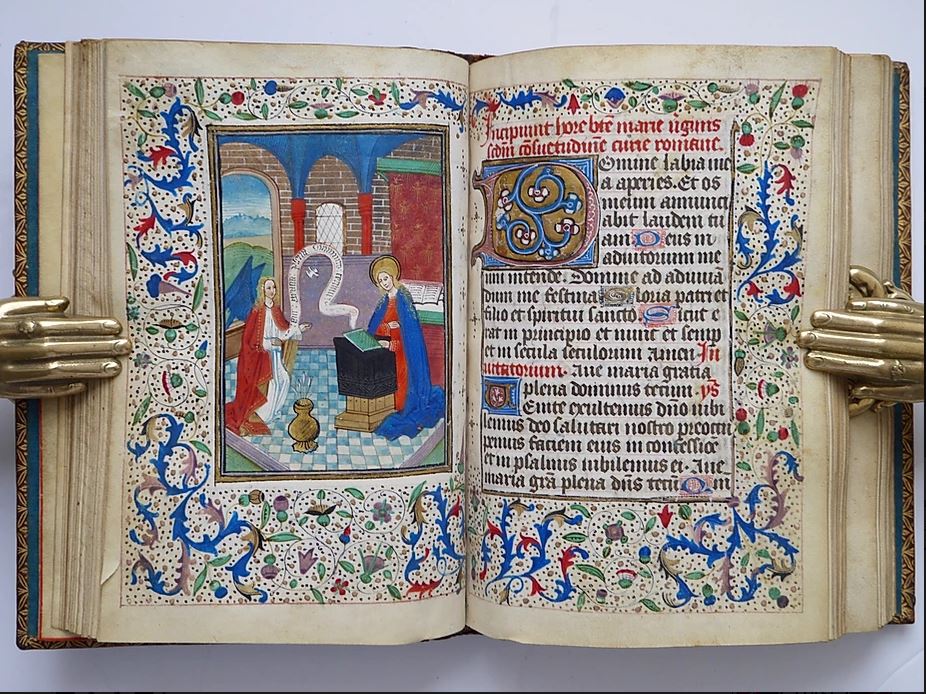 Incipiunt hore bt̄e marie uginis
scdm̄ cōsuetudinē curie romane.
Domine labia me
a aperies. Et os
meum annunci
abit laudem tu
am. Deus in
adiutorium me
um intende. Domine ad adiuuā
dum me festina. Gloria patri et
filio et spiritui sancto. Sicut e
rat in principio et nunc et semp
et in secula seculorum amen. In
uitatorium. Aue maria gratia
plena dominus tecum. ps̄
Venite exultemus dn̄o iubi
lemus deo salutari nostro preoccu
pemus faciem eius in confessiōe
et in psalmis iubilemus ei. Aue
maria gr̄a plena dn̄s tecū. Qm